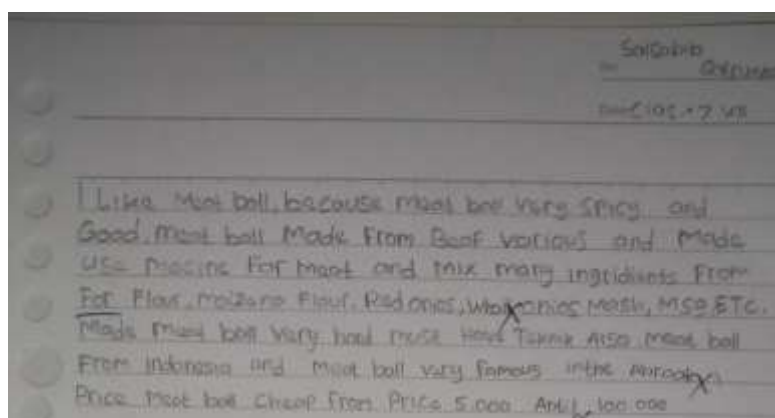 I Like Meat ball, because meat ball Very Spicy and
Good. meat ball Made From Beef various and Made
Use Mecine For meat and mix many ingridients From
For Flour, maizena Flour, Red onios, onios Mash, MSG ETC.
Made meat ball Very hard must Have Teknik Also meat ball
From Indonesia and meat ball very Famous in the
Price Meat ball cheap From Price 5.000 100.000